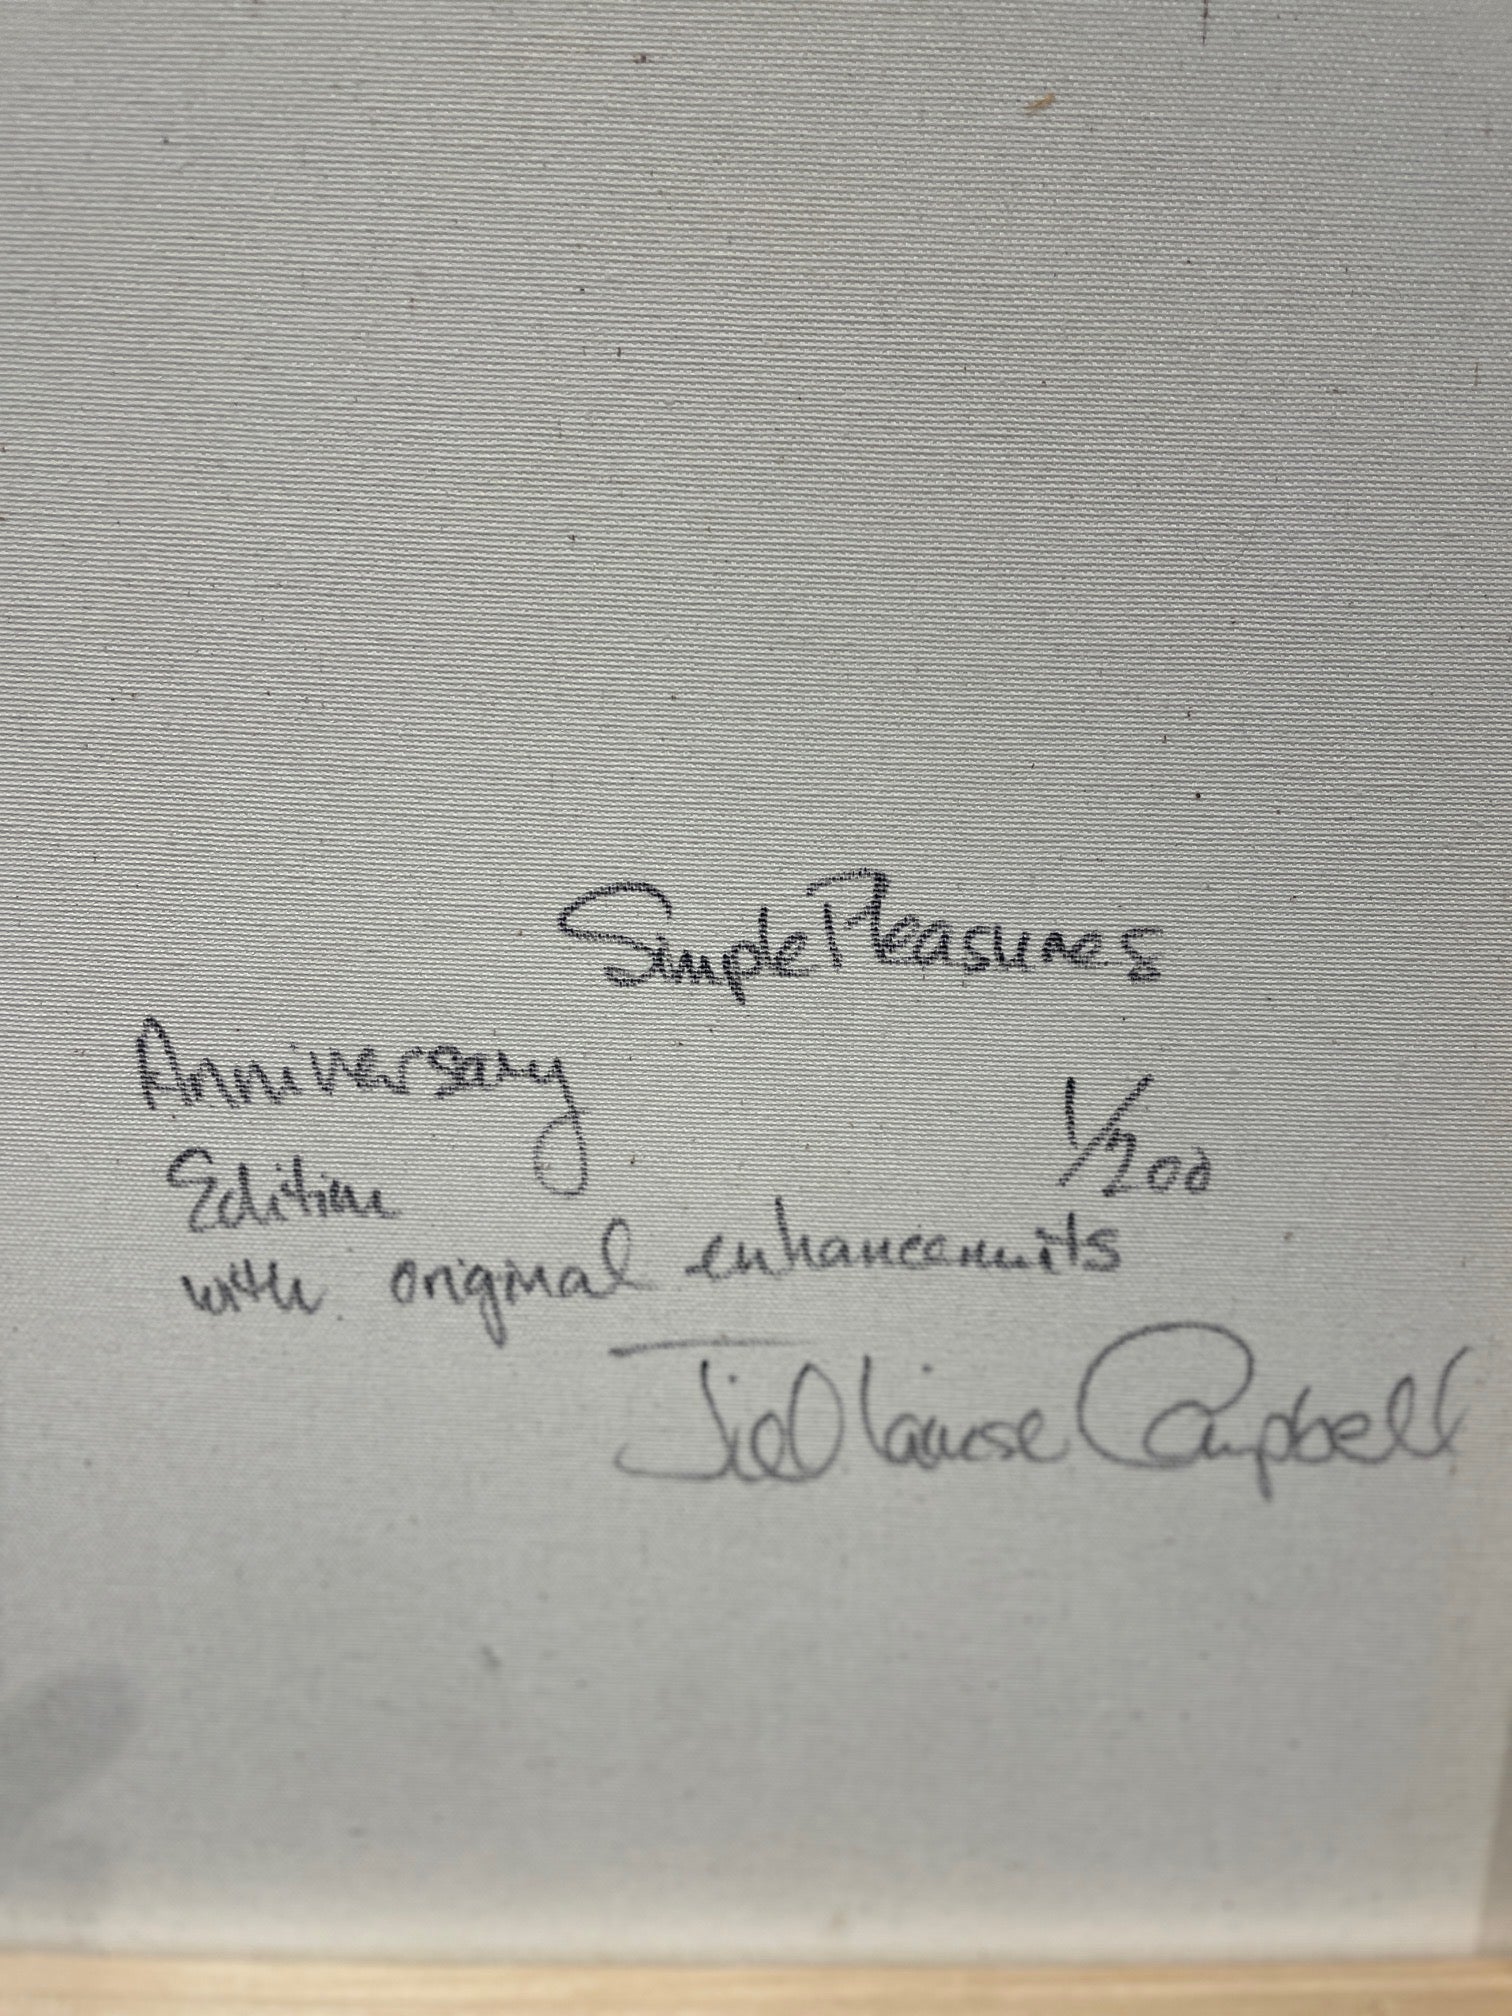 Simple Pleasures
Anniversary
1/200
Edition
with original enhancements
Jill Louise Campbell